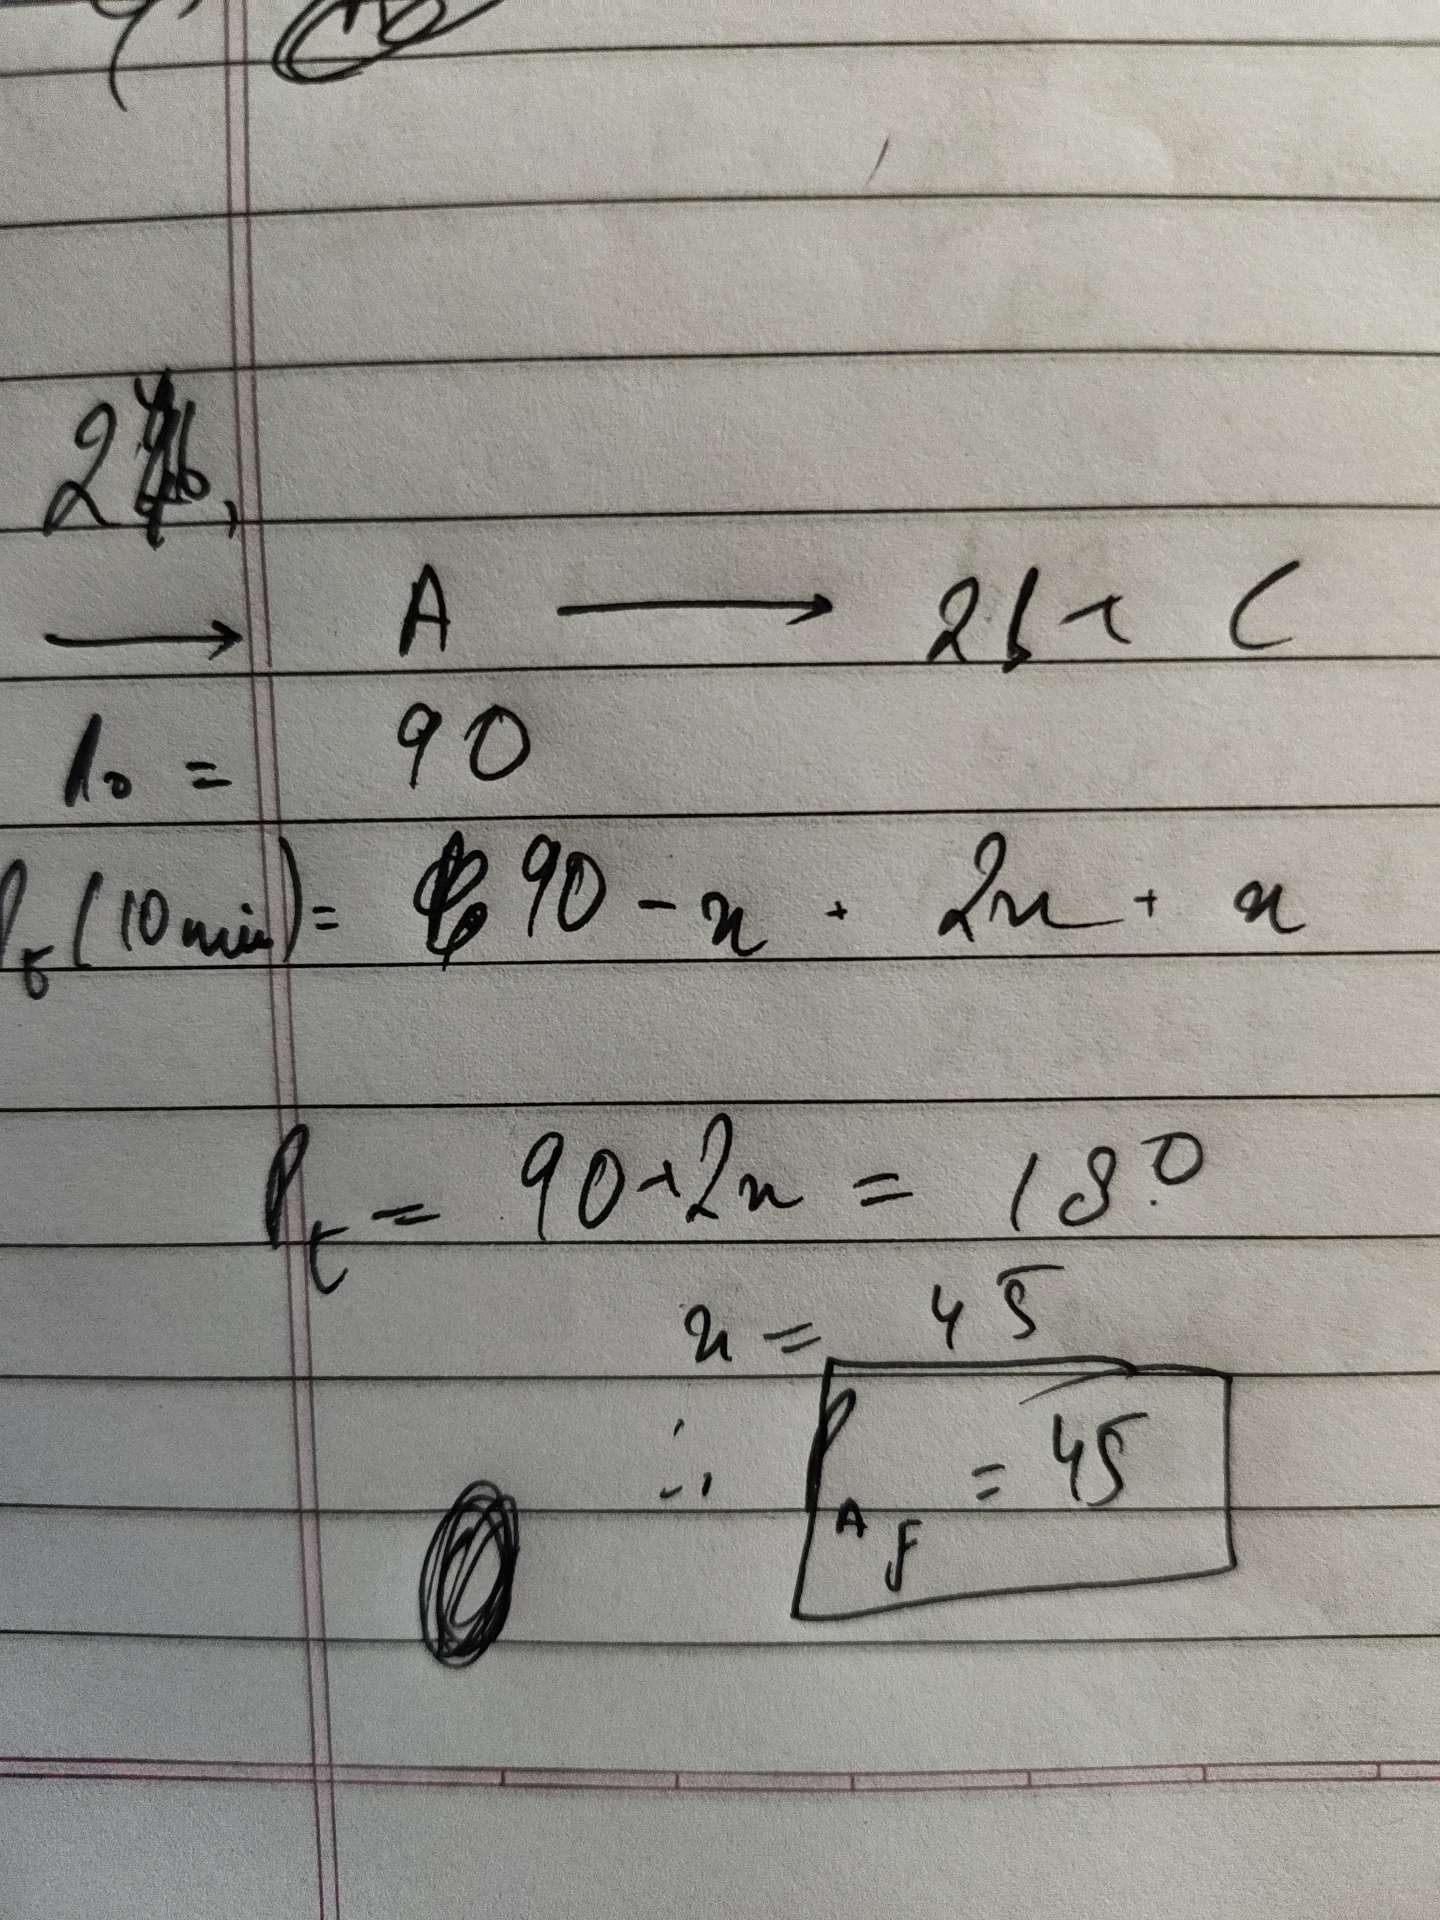 A ⟶ 2b + C
P₀ = 90
Pₜ (10 min) = 90 - x + 2x + x
Pₜ = 90 + 2x = 180
x = 45
∴ P_A_f = 45